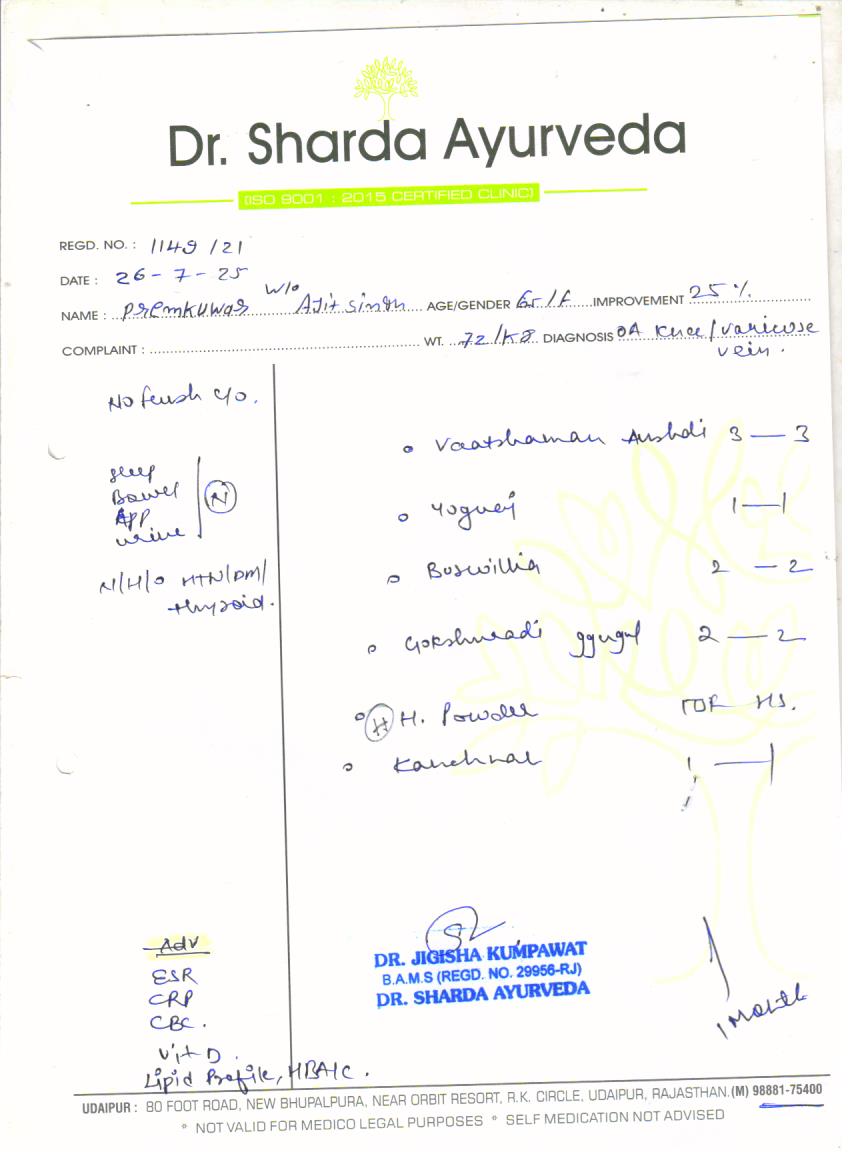 Dr. Sharda Ayurveda
(ISO 9001 : 2015 CERTIFIED CLINIC)
REGD. NO. : 1149 /21
DATE : 26-7-25
NAME : Premkuwar W/o Ajit singh AGE/GENDER 65/f IMPROVEMENT 25%
COMPLAINT : WT. 72/K8 DIAGNOSIS OA Knee/varicose
vein.
No fresh c/o.
sleep
Bowel
App
urine
N
N/H/O HTN/DM/
thyroid.
Vaatshaman Aushdi 3 — 3
Yograj 1 — 1
Boswillia 2 — 2
Gokshuradi ggugul 2 — 2
H H. Powder HS.
Kanchnar 1 — 1
Adv
ESR
CRP
CBC.
Vit D.
Lipid Profile, HBA1C.
DR. JIGISHA KUMPAWAT
B.A.M.S (REGD. NO. 29956-RJ)
DR. SHARDA AYURVEDA
1 Month
UDAIPUR : 80 FOOT ROAD, NEW BHUPALPURA, NEAR ORBIT RESORT, R.K. CIRCLE, UDAIPUR, RAJASTHAN.(M) 98881-75400
* NOT VALID FOR MEDICO LEGAL PURPOSES * SELF MEDICATION NOT ADVISED